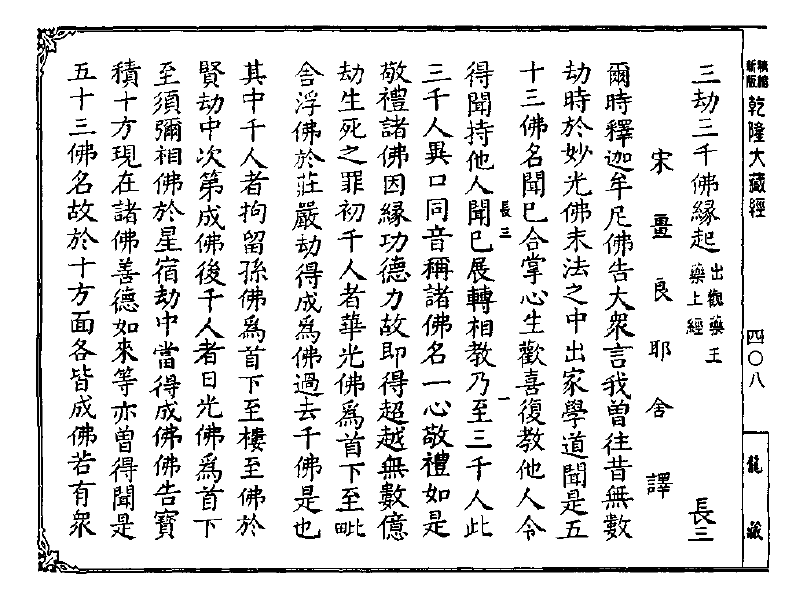 新版精縮
乾隆大藏經
四〇八
龍藏
三劫三千佛緣起 出觀藥王藥上經 長三
宋畺良耶舍譯
爾時釋迦牟尼佛告大衆言我曾往昔無數
劫時於妙光佛末法之中出家學道聞是五
十三佛名聞已合掌心生歡喜復教他人令
長三 一
得聞持他人聞已展轉相教乃至三千人此
三千人異口同音稱諸佛名一心敬禮如是
敬禮諸佛因緣功德力故即得超越無數億
劫生死之罪初千人者華光佛爲首下至毗
舍浮佛於莊嚴劫得成爲佛過去千佛是也
其中千人者拘留孫佛爲首下至樓至佛於
賢劫中次第成佛後千人者日光佛爲首下
至須彌相佛於星宿劫中當得成佛佛告寶
積十方現在諸佛善德如來等亦曾得聞是
五十三佛名故於十方面各皆成佛若有衆